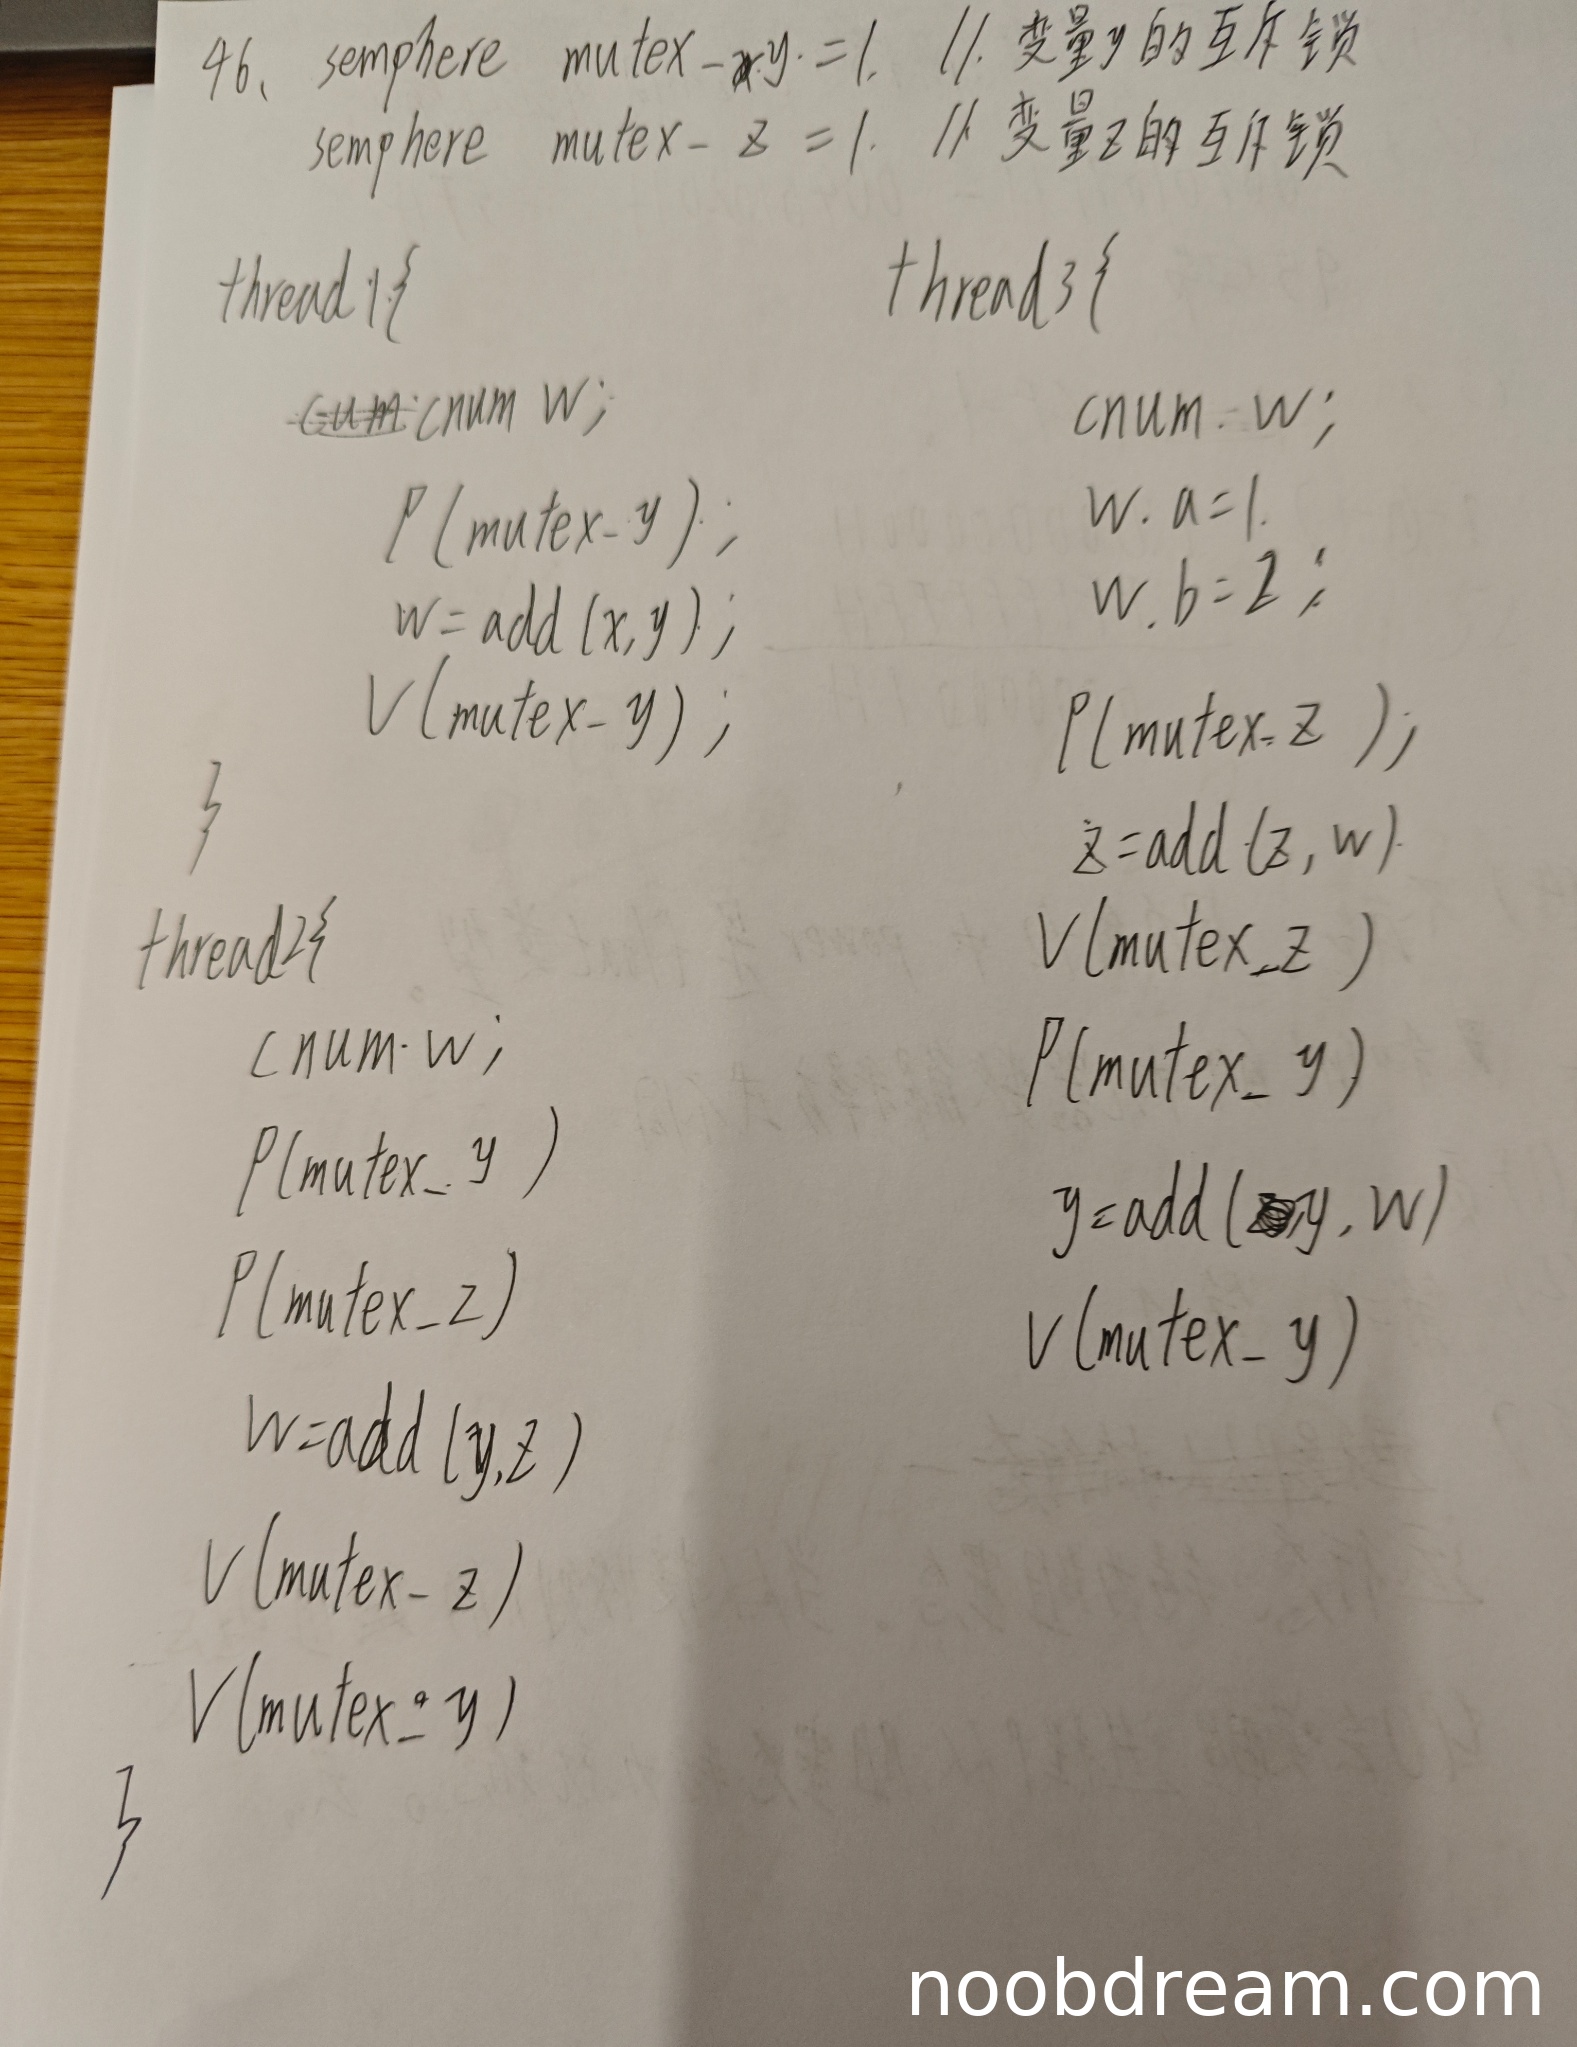 46、 semphere mutex-y=1. // 变量y的互斥锁
semphere mutex-z=1. // 变量z的互斥锁
thread1{
cnum w;
P(mutex-y);
w=add(x,y);
V(mutex-y);
}
thread2{
cnum w;
P(mutex_y)
P(mutex_z)
w=add(y,z)
V(mutex-z)
V(mutex_y)
}
thread3{
cnum w;
w.a=1.
w.b=2;
P(mutex-z);
z=add(z,w).
V(mutex_z)
P(mutex_y)
y=add(y,w)
V(mutex-y)
noobdream.com